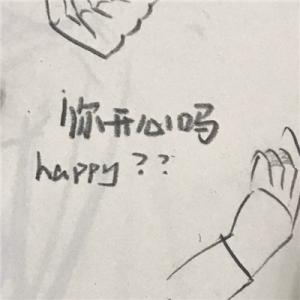 你开心吗
happy??